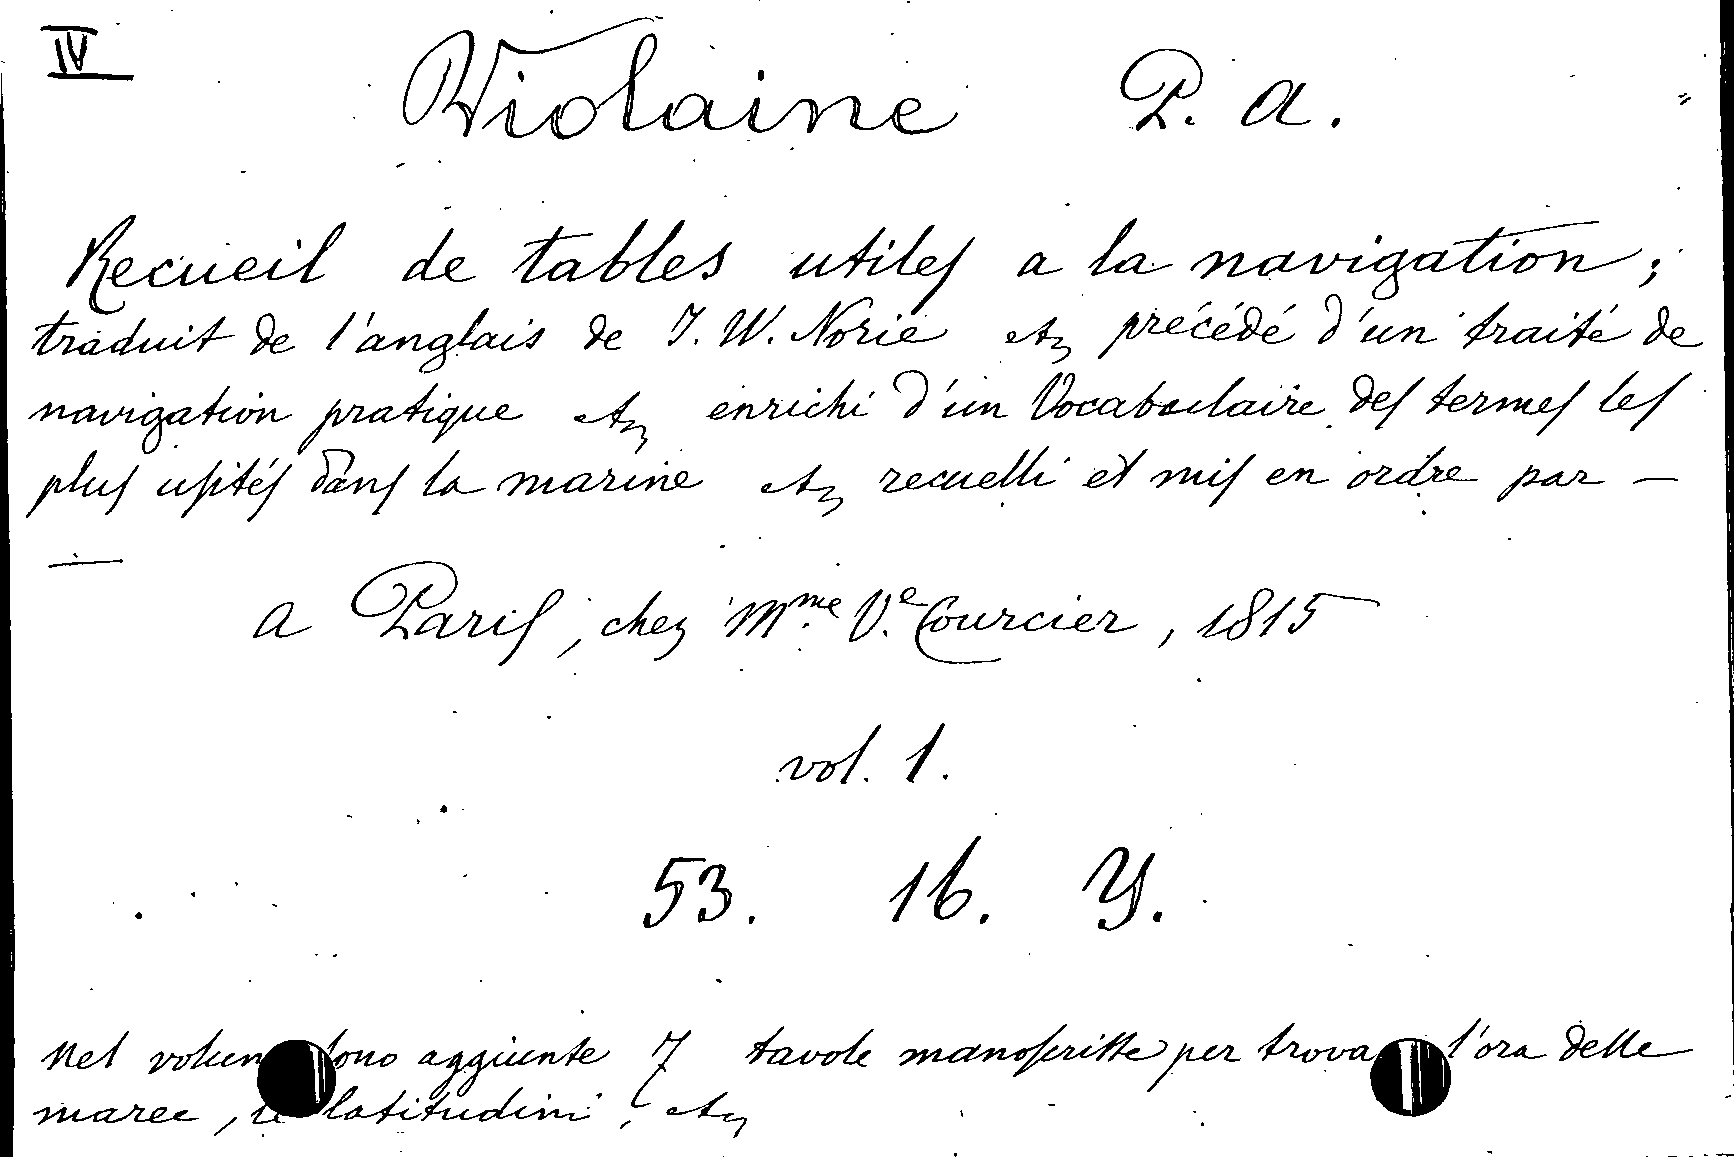 IV
Violaine P. A.
Recueil de tables utiles a la navigation;
traduit de l'anglais de J. W. Norie etc précédé d'un traité de
navigation pratique etc enrichi d'un Vocabulaire des termes les
plus usités dans la marine etc recuelli et mis en ordre par —
—
a Paris, chez Mme. Ve. Courcier, 1815
vol. 1.
53. 16. Y.
Nel sono aggiunte 7 tavole manoscritte per l'ora delle
maree, latitudini, etc